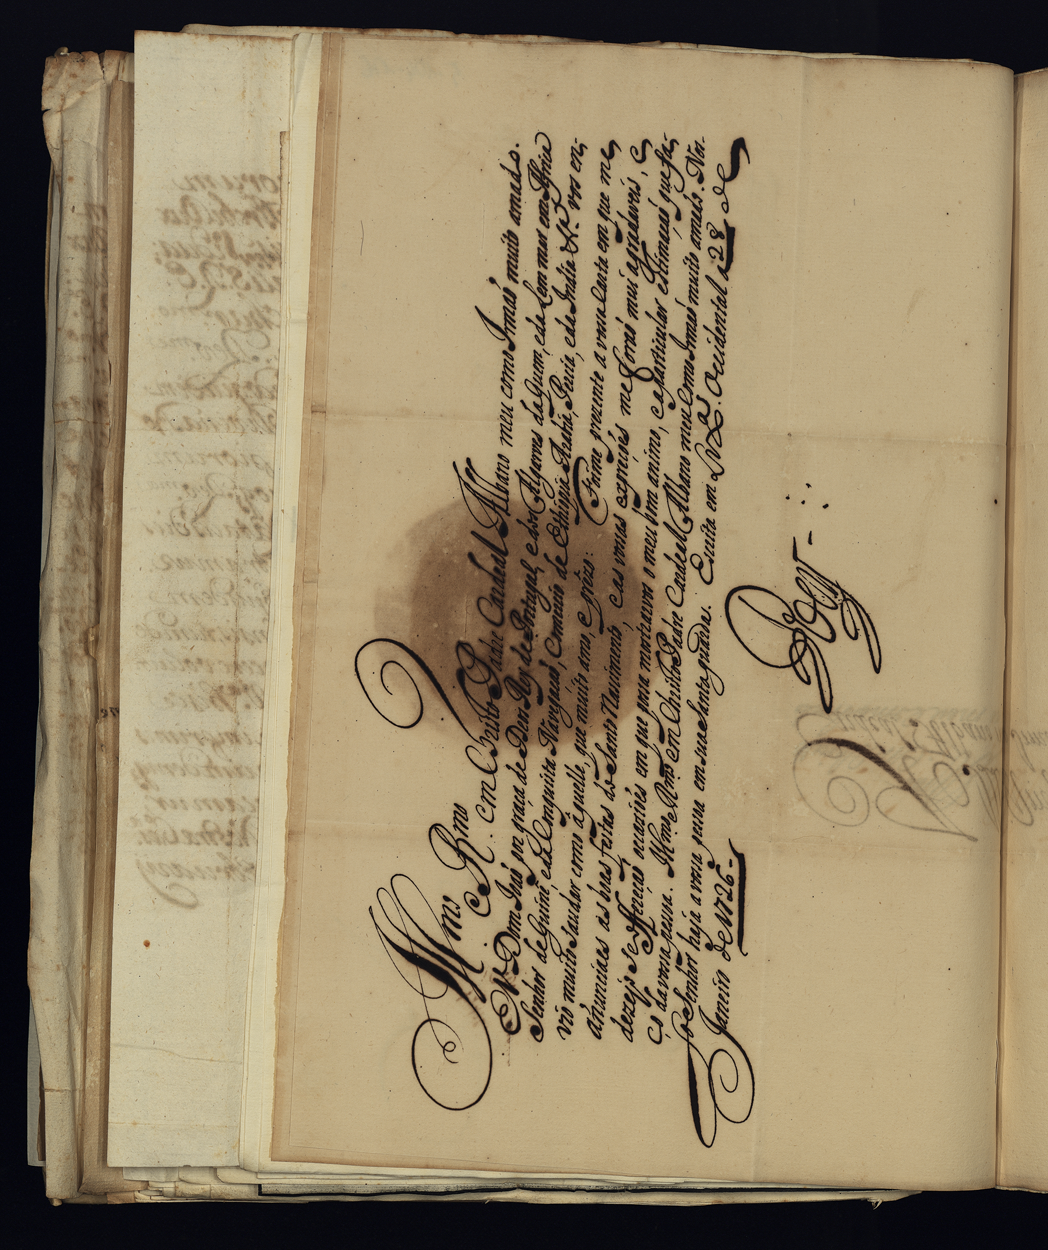 Illmo. Rmo. em Christo Padre Cardeal Albano meu como Irmaõ muito amado.
Eu Dom Joaõ por graça de Deos Rey de Portugal, e dos Algarves daquem, e dalem mar em Africa
Senhor de Guiné e da Conquista Navegaçaõ, Comercio de Ethiopia Arabia, Persia, e da India &ra. vos en-
vio muito saudar como aquelle, que muito amo, e prezo. Foime prezente a vossa Carta em que me
anunciaes as boas festas do Santo Nascimento, e as vossas expressões me foraõ mui agradaveis, e
dezejo se offereçaõ occasiões em que possa mostrarvos o meu bom animo, e a particular estimaçaõ que fa-
ço da vossa pessoa. Illmo. Rmo. em Christo Padre Cardeal Albano meu Como Irmaõ muito amado. Nos-
so Senhor haja a vossa pessoa em sua Santa guarda. Escrita em Lxa. Occidental a 28 de
Janeiro de 1726.
Rey